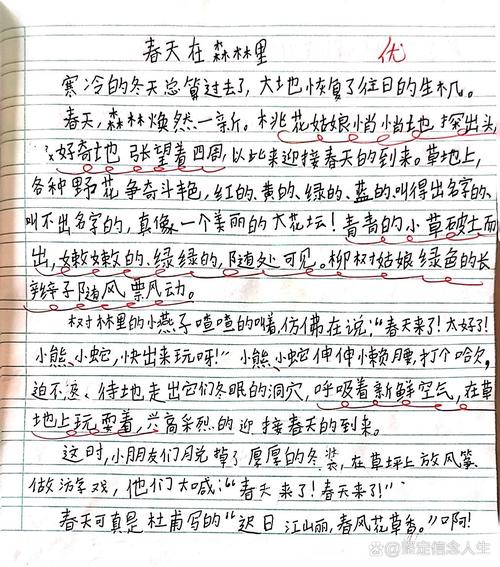 春天在森林里 优
寒冷的冬天总算过去了,大地恢复了往日的生机。
春天,森林焕然一新。桃花姑娘悄悄地探出头
好奇地张望着四周,以此来迎接春天的到来。草地上,
各种野花争奇斗艳,红的、黄的、绿的、蓝的、叫得出名字的、
叫不出名字的,真像一个美丽的大花坛!青青的小草破土而
出,嫩嫩的、绿绿的,随处可见。柳树姑娘绿色的长
辫子随风票风动。
树林里的小燕子喳喳的叫着,仿佛在说:“春天来了!太好了!
小熊、小蛇,快出来玩呀!”小熊、小蛇伸伸小懒腰,打个哈欠,
迫不及待地走出它们冬眠的洞穴,呼吸着新鲜空气,在草
地上玩耍着,兴高采烈的迎接春天的到来。
这时,小朋友们脱掉了厚厚的冬装,在草坪上放风筝
做游戏,他们大喊:“春天来了!春天来了!”
春天可真是杜甫写的“迟日江山丽,春风花草香。”啊!
@坚定信念人生